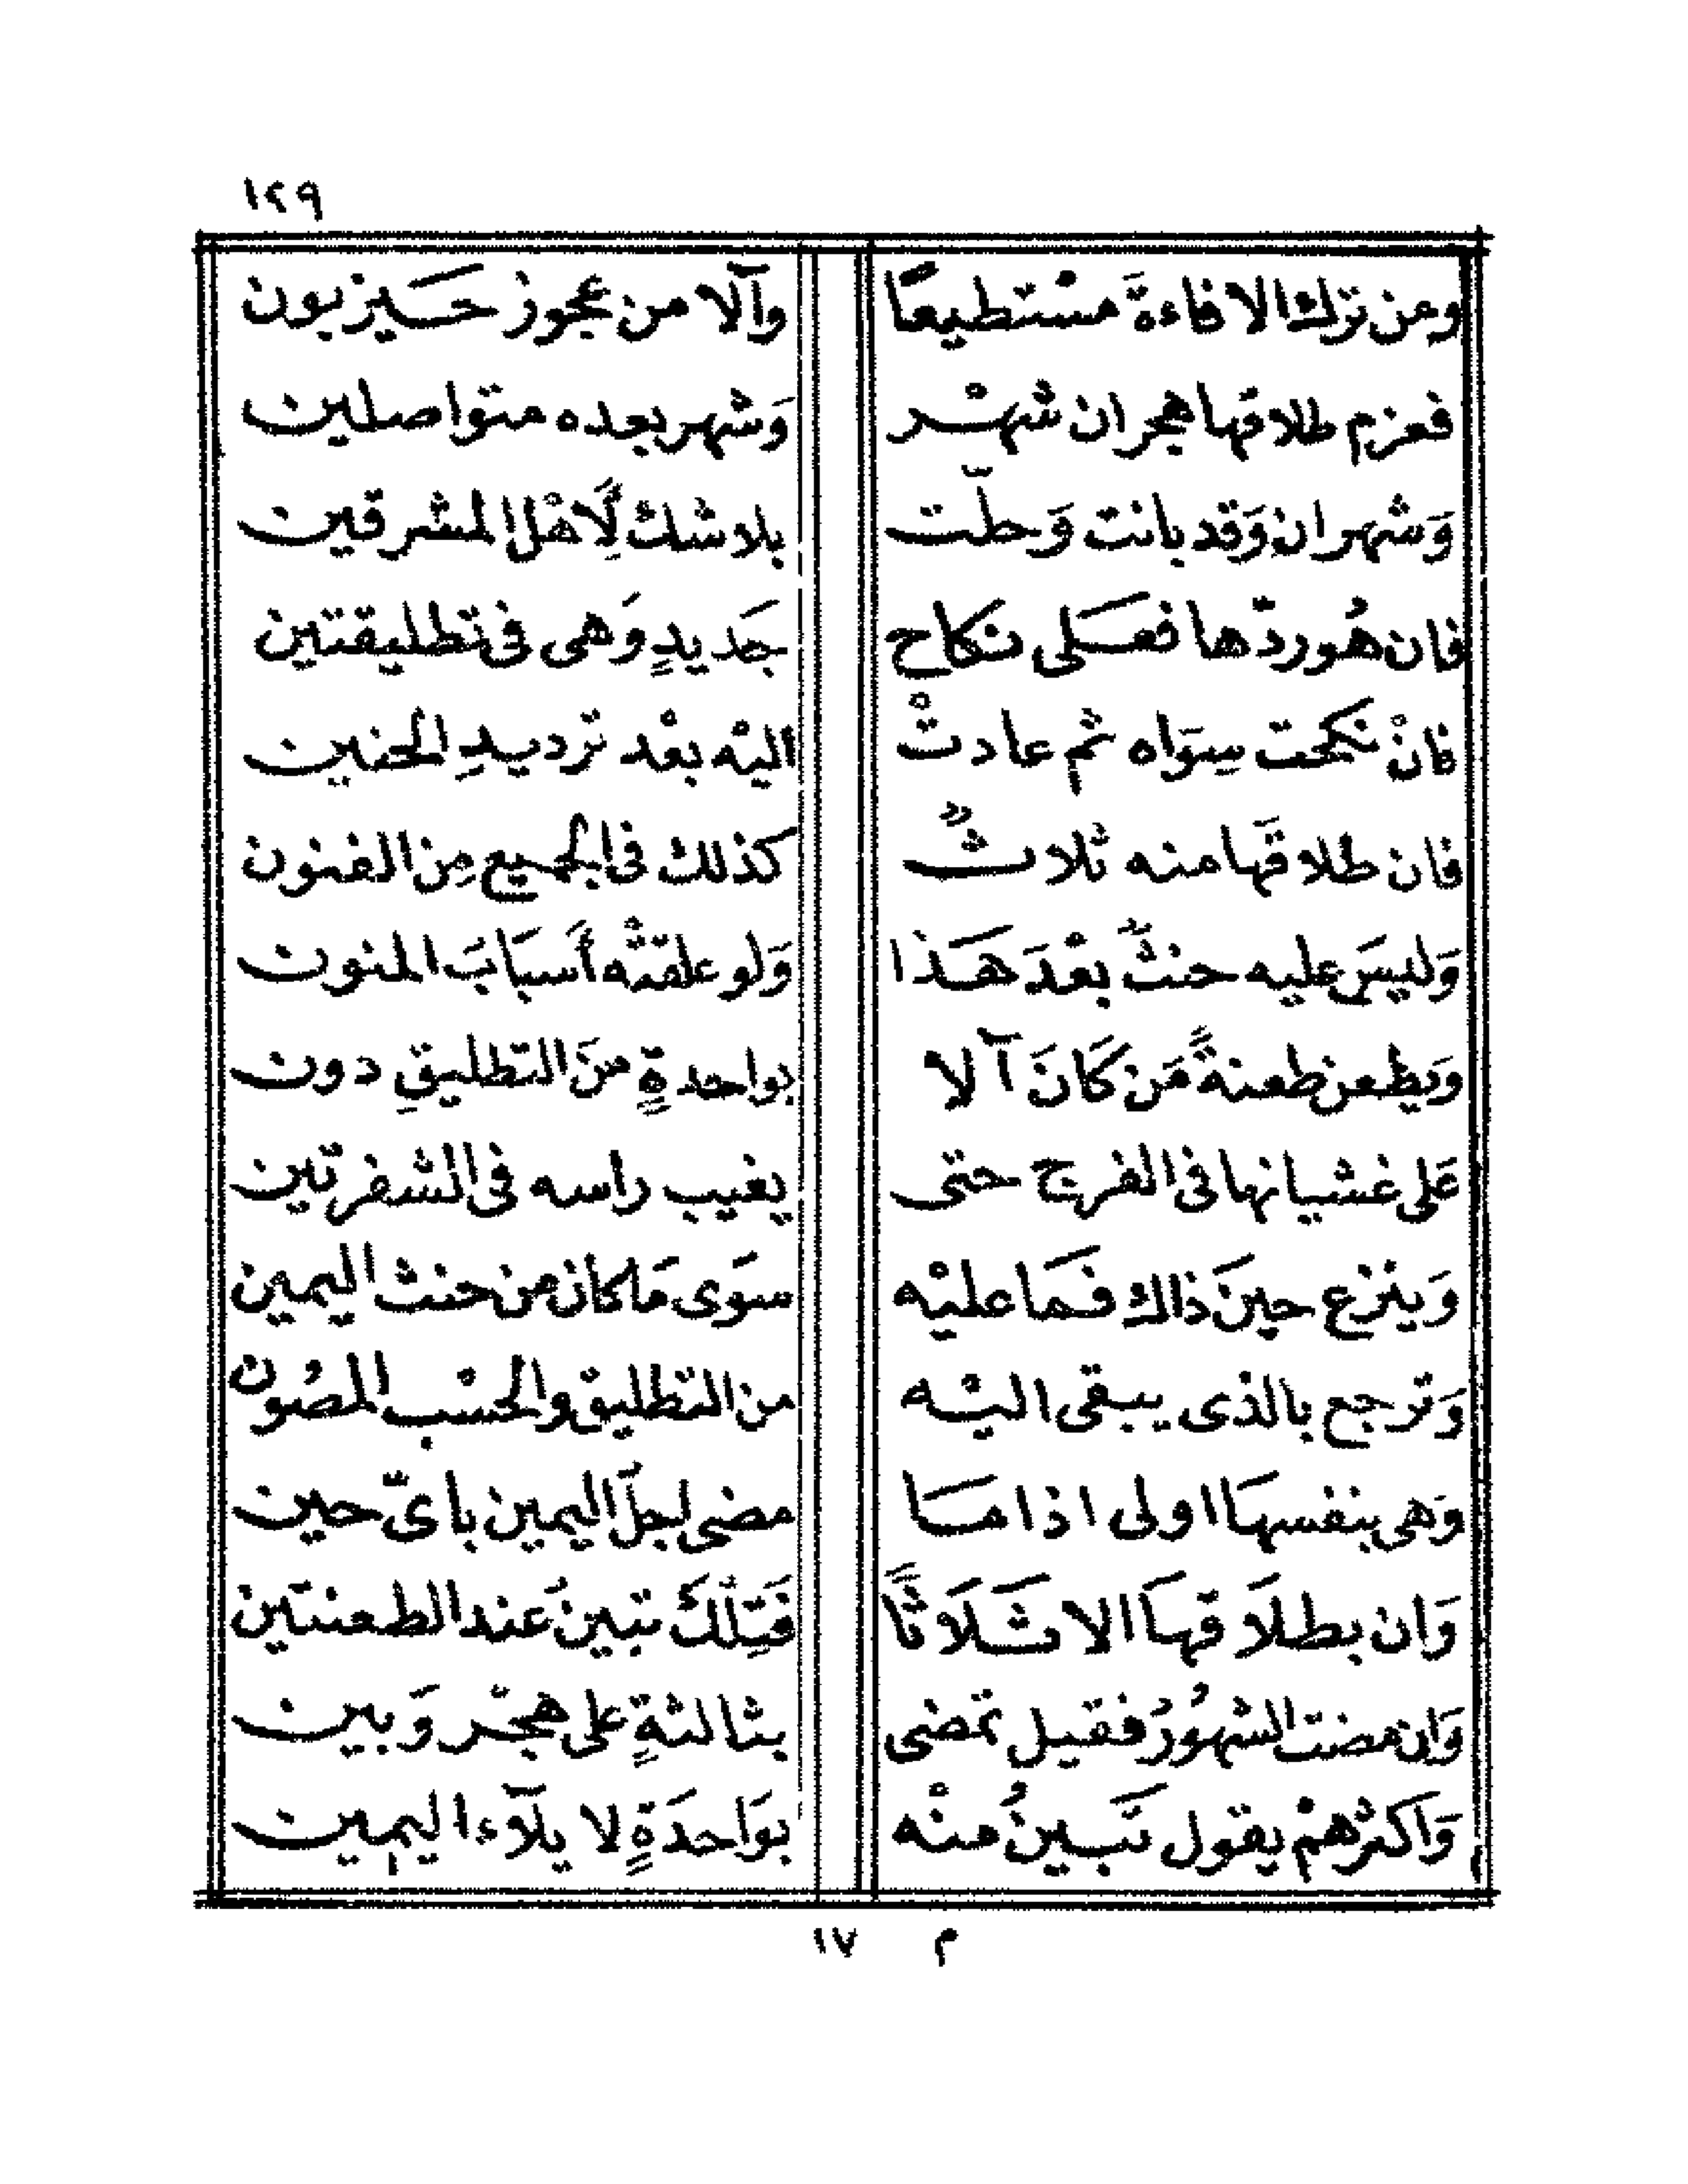 ١٢٩
ومن ترك الافاءةَ مسْتطيعًا وآلا من عجوز حَيزبون
فعزم طلاقها هجران شهْر وَشهر بعده متواصلين
وَشهران وَقد بانت وَحلّت بلا شك لِأَهْل المشرقين
فان هُو ردّها فعَلى نكاح جَديدٍ وَهى فى تطليقتين
فانْ نكحت سِوَاه ثم عادتْ اليْه بعْد ترديدِ الحنين
فان طلاقَها منه ثلاثٌ كذلك فى الجميع مِن الفنون
وَليسَ عليه حنثٌ بعْدَ هَذا وَلو علقتْه أَسبَابَ المنون
وَيطعن طعنةً مَن كَانَ آلا بواحدةٍ منَ التطليقِ دون
عَلى غشيانها فى الفرج حتى يغيب راسه فى الشفرتين
وَينزع حينَ ذالك فمَا عليْه سوَى مَا كان من حنث اليمين
وَترجع بالذى يبقى اليْه من التطليق والحسْب المصُون
وَهى بنفسهَا اولى اذا مَا مضى اجلّ اليمين باىّ حين
وَان بطلَاقهَا الا ثَلَاثًا فَتِلْكَ تبينُ عند الطعنتين
وَان مضت الشهُورُ فقيل تمضى بثالثةٍ على هجْر وَبين
وَاكثرُهمْ يقول تَبينُ منْه بوَاحدَةٍ لا يلآء اليمين
م ١٧